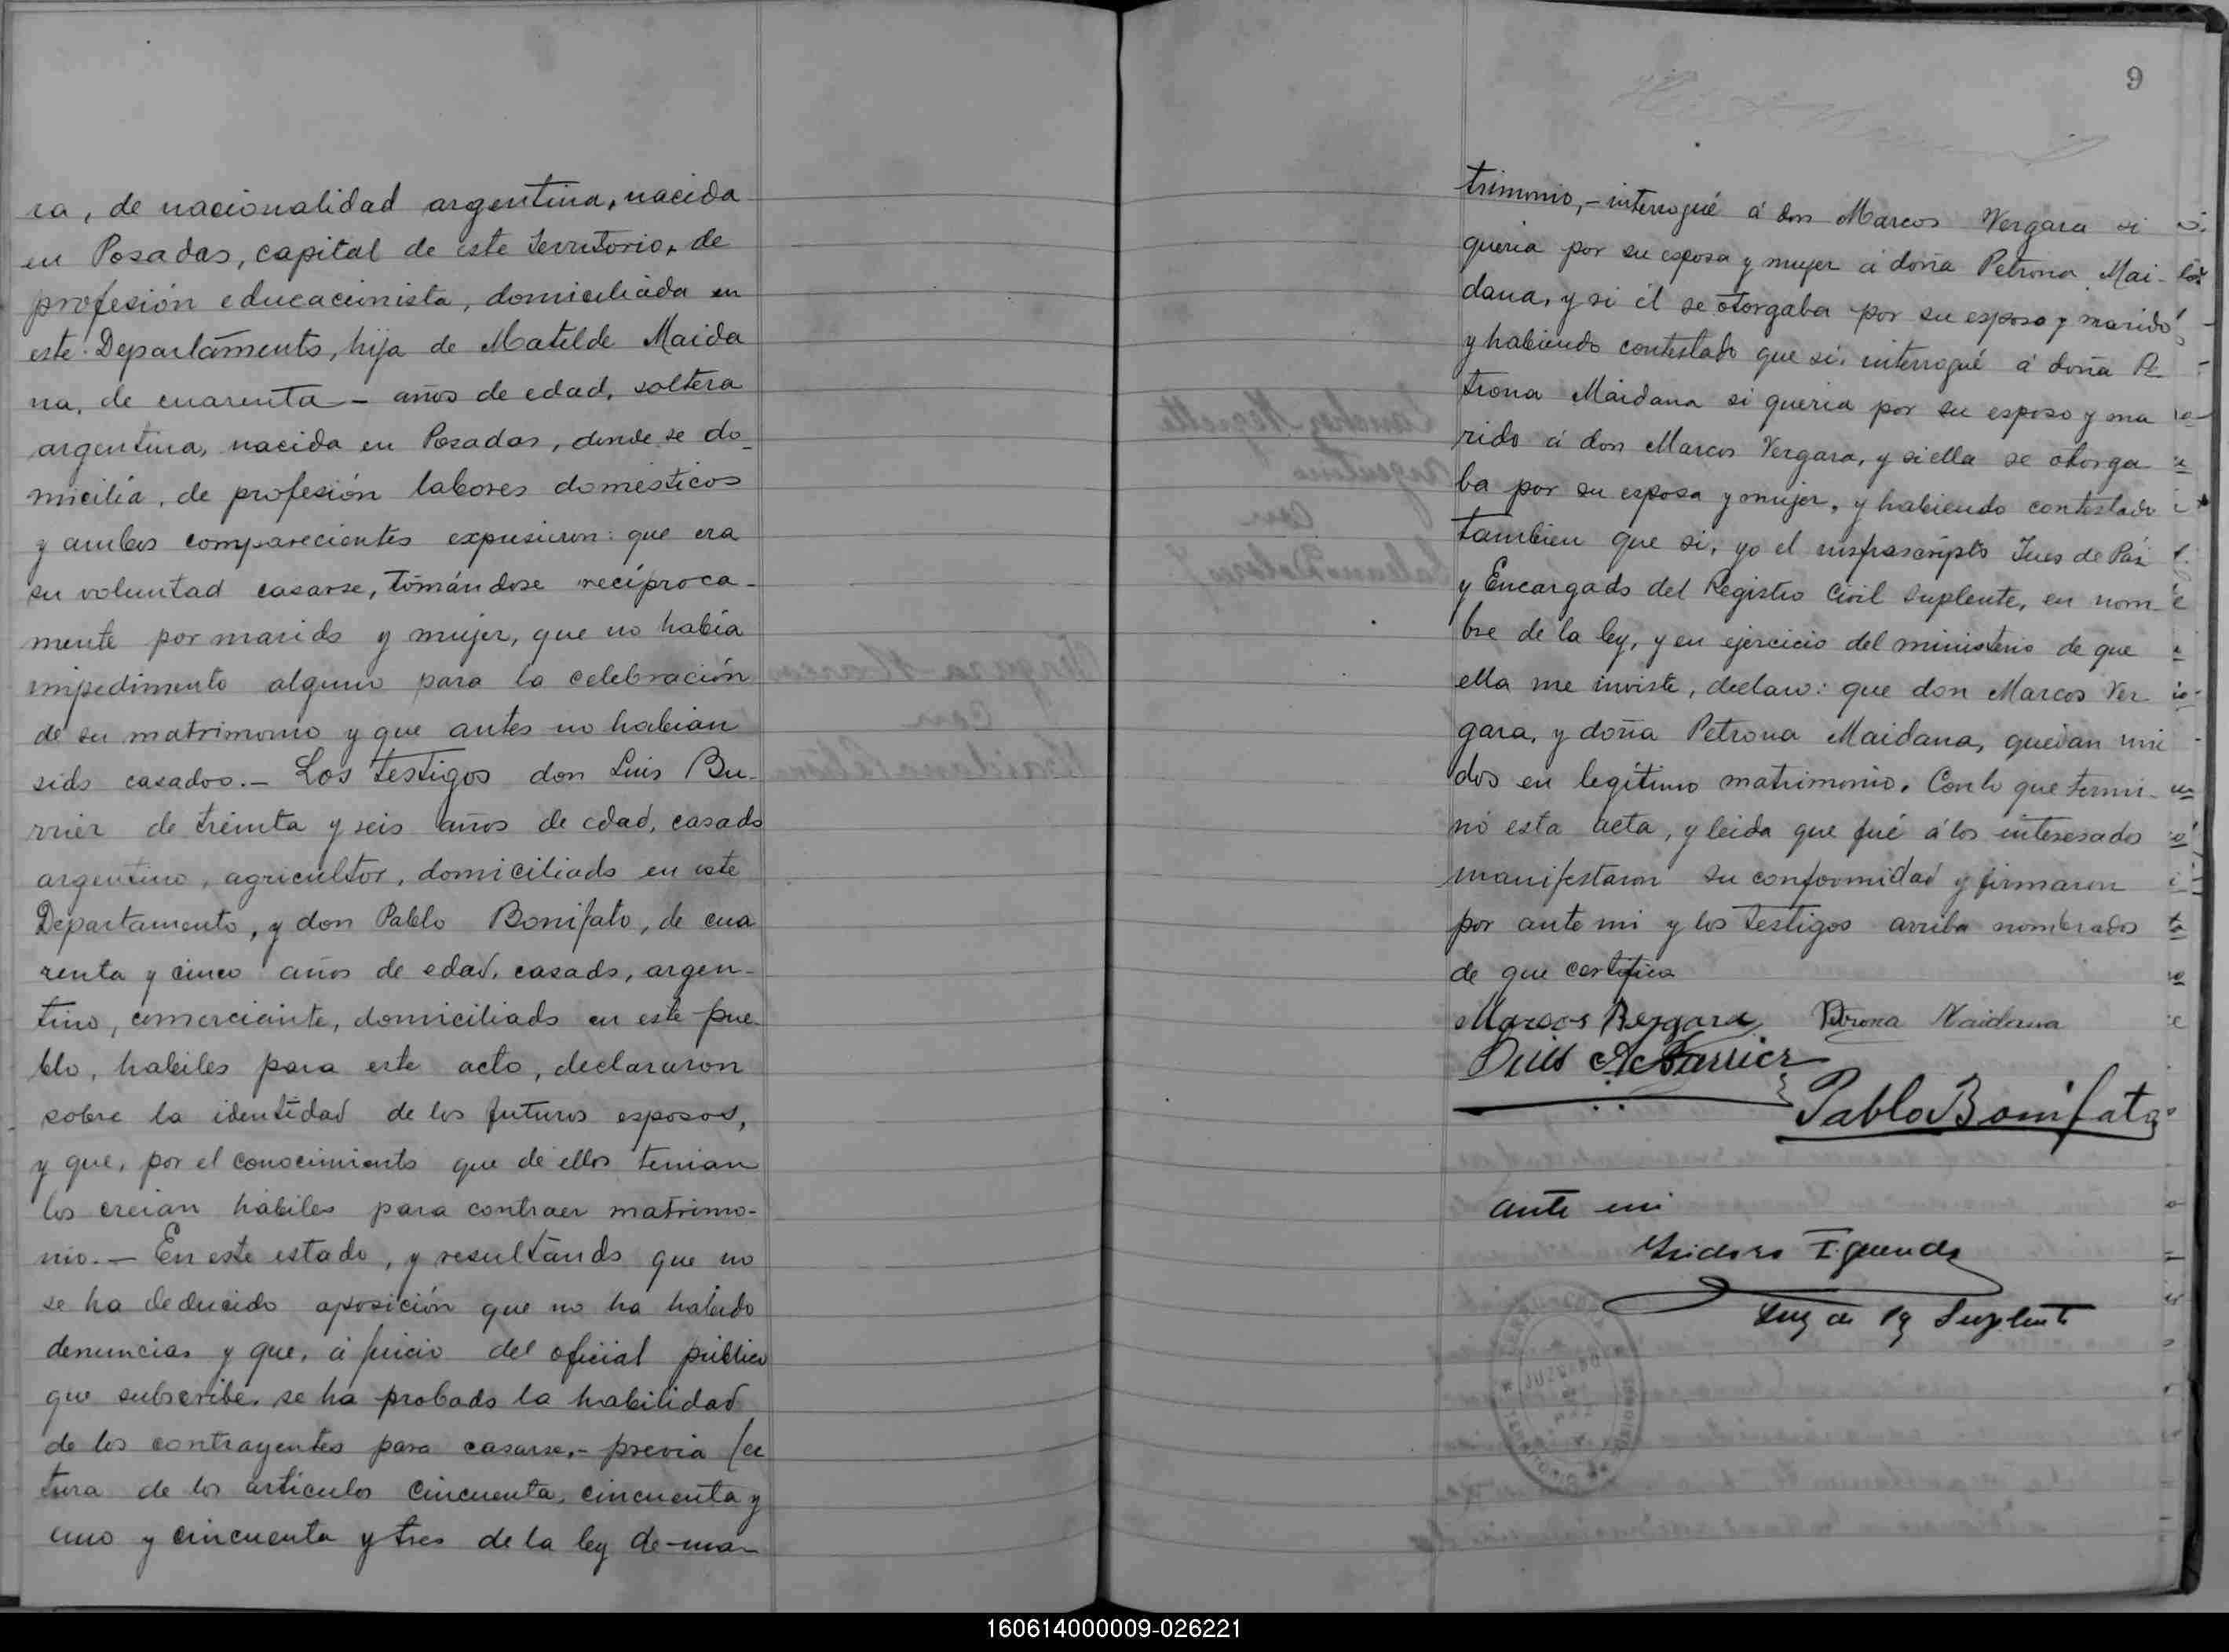 ra, de nacionalidad argentina, nacida
en Posadas, capital de este Territorio, de
profesión educacionista, domiciliada en
este Departamento, hija de Matilde Maida
na, de cuarenta - años de edad, soltera
argentina, nacida en Posadas, donde se do-
micilia, de profesión labores domésticos
y ambos comparecientes expusieron: que era
su voluntad casarse, tomándose recíproca-
mente por marido y mujer, que no había
impedimento alguno para la celebración
de su matrimonio y que antes no habian
sido casados.- Los testigos don Luis Bu-
rrier de treinta y seis años de edad, casado
argentino, agricultor, domiciliado en este
Departamento, y don Pablo Bonifato, de cua
renta y cinco años de edad, casado, argen-
tino, comerciante, domiciliado en este pue-
blo, habiles para este acto, declararon
sobre la identidad de los futuros esposos,
y que, por el conocimiento que de ellos tenian
los creian hábiles para contraer matrimo-
nio.- En este estado, y resultando que no
se ha deducido oposición que no ha habido
denuncias y que, á juicio del oficial público
que subscribe, se ha probado la habilidad
de los contrayentes para casarse,- previa lec
tura de los artículos cincuenta, cincuenta y
uno y cincuenta y tres de la ley de ma-
9
trimonio,- interrogué á don Marcos Vergara si
queria por su esposa y mujer á doña Petrona Mai-
dana, y si él se otorgaba por su esposo y marido
y habiendo contestado que sí, interrogué á doña Pe
trona Maidana si queria por su esposo y ma
rido á don Marcos Vergara, y si ella se otorga
ba por su esposa y mujer, y habiendo contestado
tambien que si, yo el infrascripto Jues de Paz
y Encargado del Registro Civil Suplente, en nom-
bre de la ley, y en ejercicio del ministerio de que
ella me inviste, declaro: que don Marcos Ver
gara, y doña Petrona Maidana, quedan uni
dos en legítimo matrimonio. Con lo que termi-
nó esta acta, y leida que fué á los interesados
manifestaron su conformidad y firmaron
por ante mi y los testigos arriba nombrados
de que certifico
Marcos Bergara Petrona Maidana
Luis A Burrier
Pablo Bonifato
ante mi
Isidoro
Juez de Paz Suplente
JUZGADO
DE
PAZ
160614000009-026221